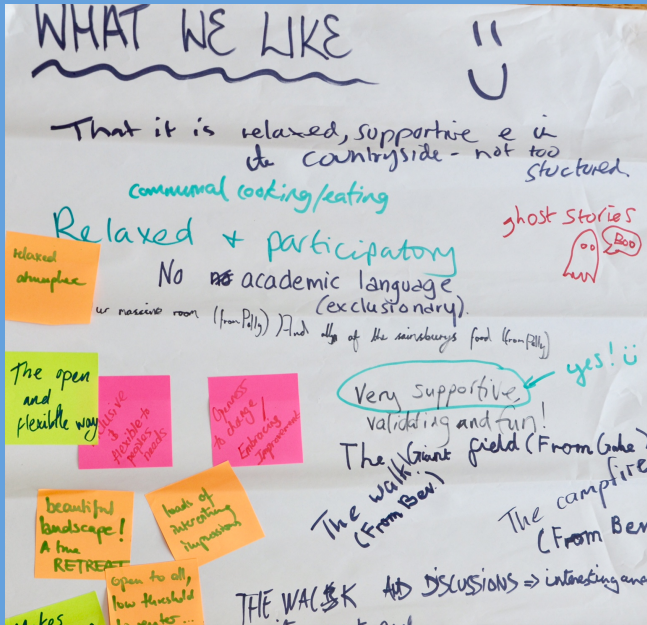 WHAT WE LIKE
That it is relaxed, supportive e in
the countryside - not too
stuctured.
communal cooking/eating
ghost stories
Boo
Relaxed + participatory
relaxed
atmosphere
No academic language
(exclusionary).
massive room (from Polly) And all of the sainsburys food (from Polly)
The open
and
flexible way
flexible to
peoples
needs
to change/
Embracing
Improvement
yes!
Very supportive,
validating and fun!
The Giant field (From Gabe)
The walk!
(From Bev)
The campfire
(From Bev
beautiful
landscape!
A true
RETREAT
loads of
interesting
open to all,
low threshold
to enter...
THE WALK AND DISCUSSIONS ⇒ interesting and